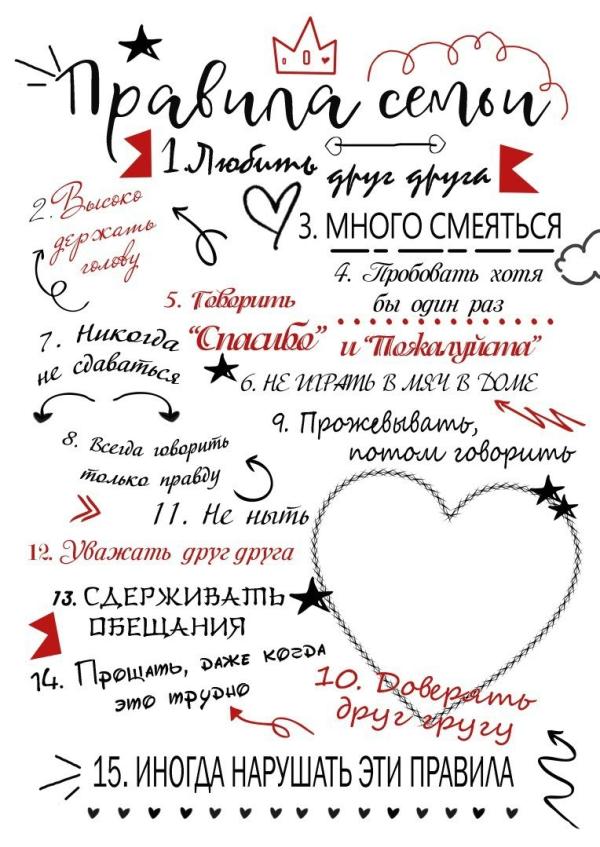 Правила семьи
1. Любить друг друга
2. Высоко
держать
голову
3. МНОГО СМЕЯТЬСЯ
4. Пробовать хотя
бы один раз
5. Говорить
"Спасибо" и "Пожалуйста"
6. НЕ ИГРАТЬ В МЯЧ В ДОМЕ
7. Никогда
не сдаваться
8. Всегда говорить
только правду
9. Прожевывать,
потом говорить
10. Доверять
друг другу
11. Не ныть
12. Уважать друг друга
13. СДЕРЖИВАТЬ
ОБЕЩАНИЯ
14. Прощать, даже когда
это трудно
15. ИНОГДА НАРУШАТЬ ЭТИ ПРАВИЛА